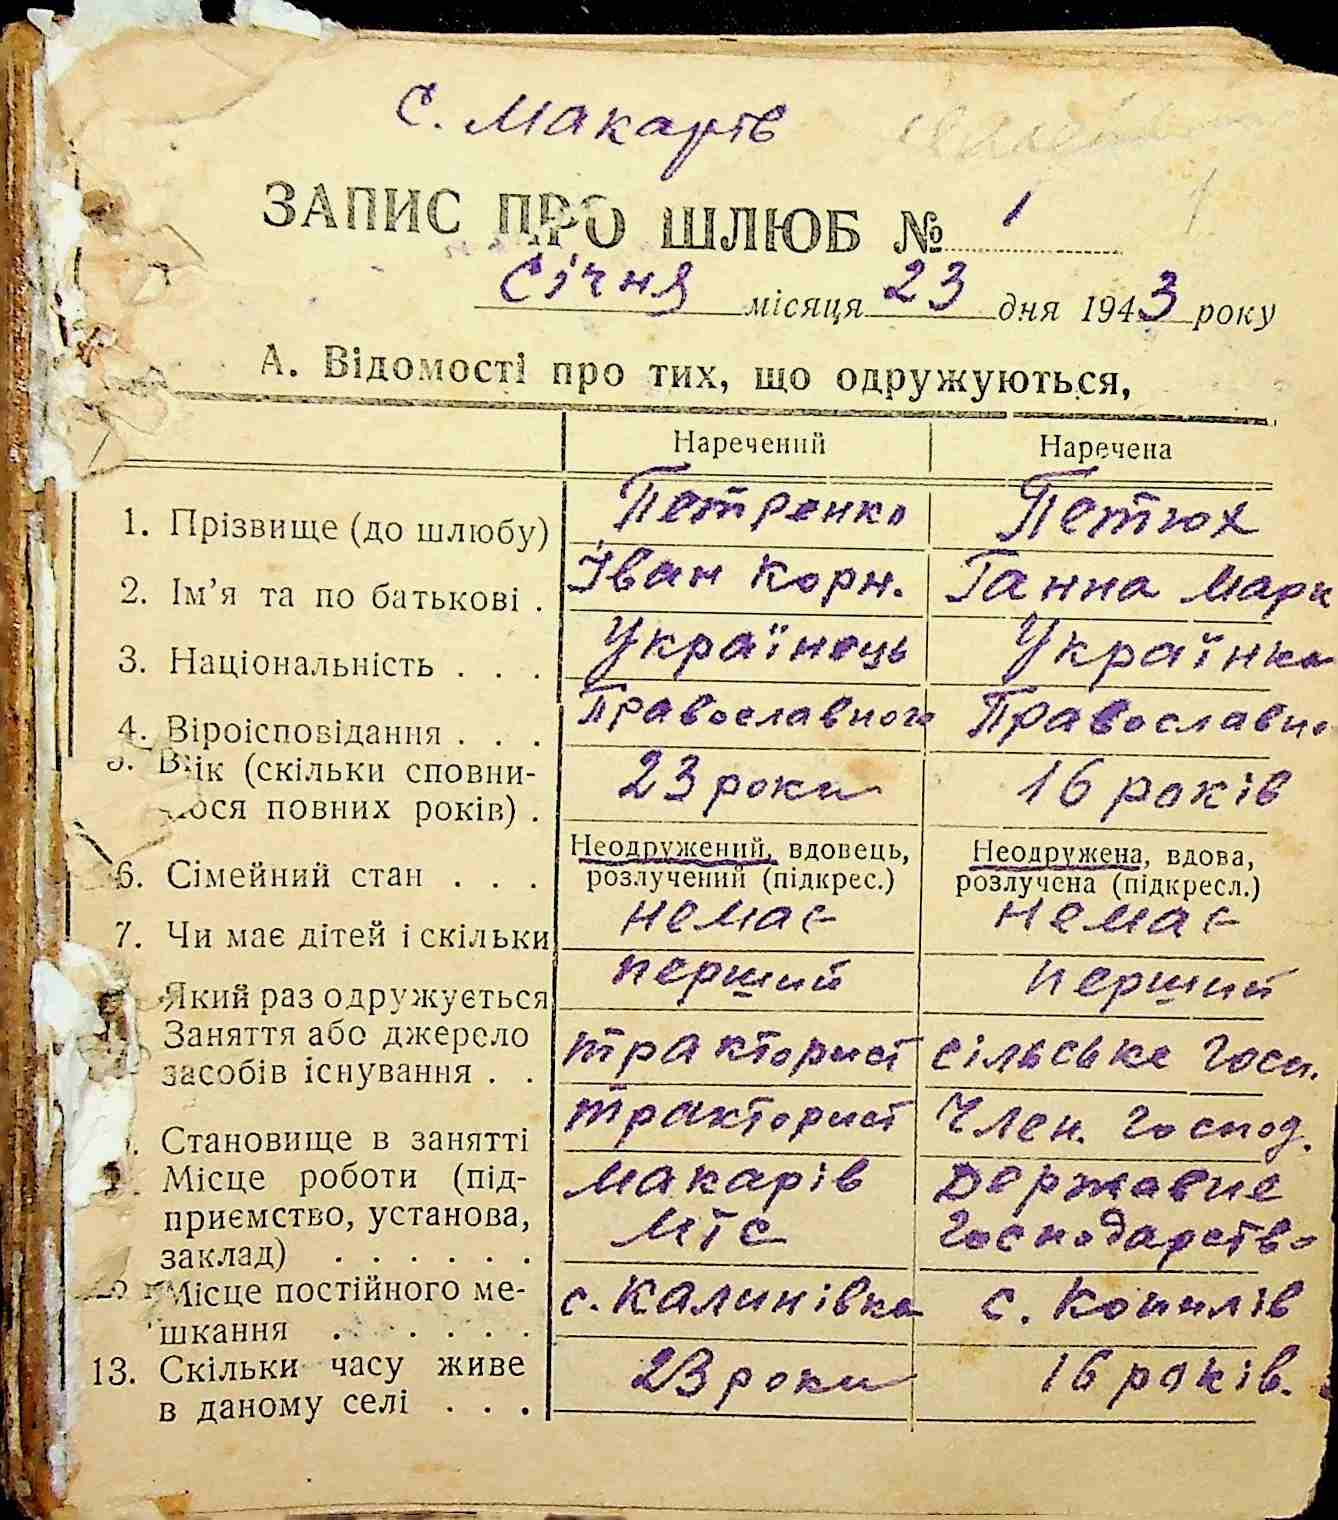 с. Макарів
ЗАПИС ПРО ШЛЮБ № 1
1
Січня місяця 23 дня 1943 року
А. Відомості про тих, що одружуються,
Наречений Наречена
1. Прізвище (до шлюбу) Петренко Петюх
2. Ім’я та по батькові . Іван Корн. Ганна Марк
3. Національність . . . Українець Українка
4. Віроісповідання . . . Православного Православно
5. Вік (скільки сповни-
лося повних років) . 23 роки 16 років
Неодружений, вдовець, Неодружена, вдова,
6. Сімейний стан . . . розлучений (підкрес.) розлучена (підкресл.)
7. Чи має дітей і скільки немає немає
Який раз одружується перший перший
Заняття або джерело
засобів існування . . тракторист сільське госп.
Становище в занятті тракторист Член. господ.
Місце роботи (під- Макарів Державне
приємство, установа, МТС Господарство
заклад) . . . . . .
Місце постійного ме- с. Калинівка с. Копилів
шкання . . . . . .
13. Скільки часу живе 23 роки 16 років.
в даному селі . . .